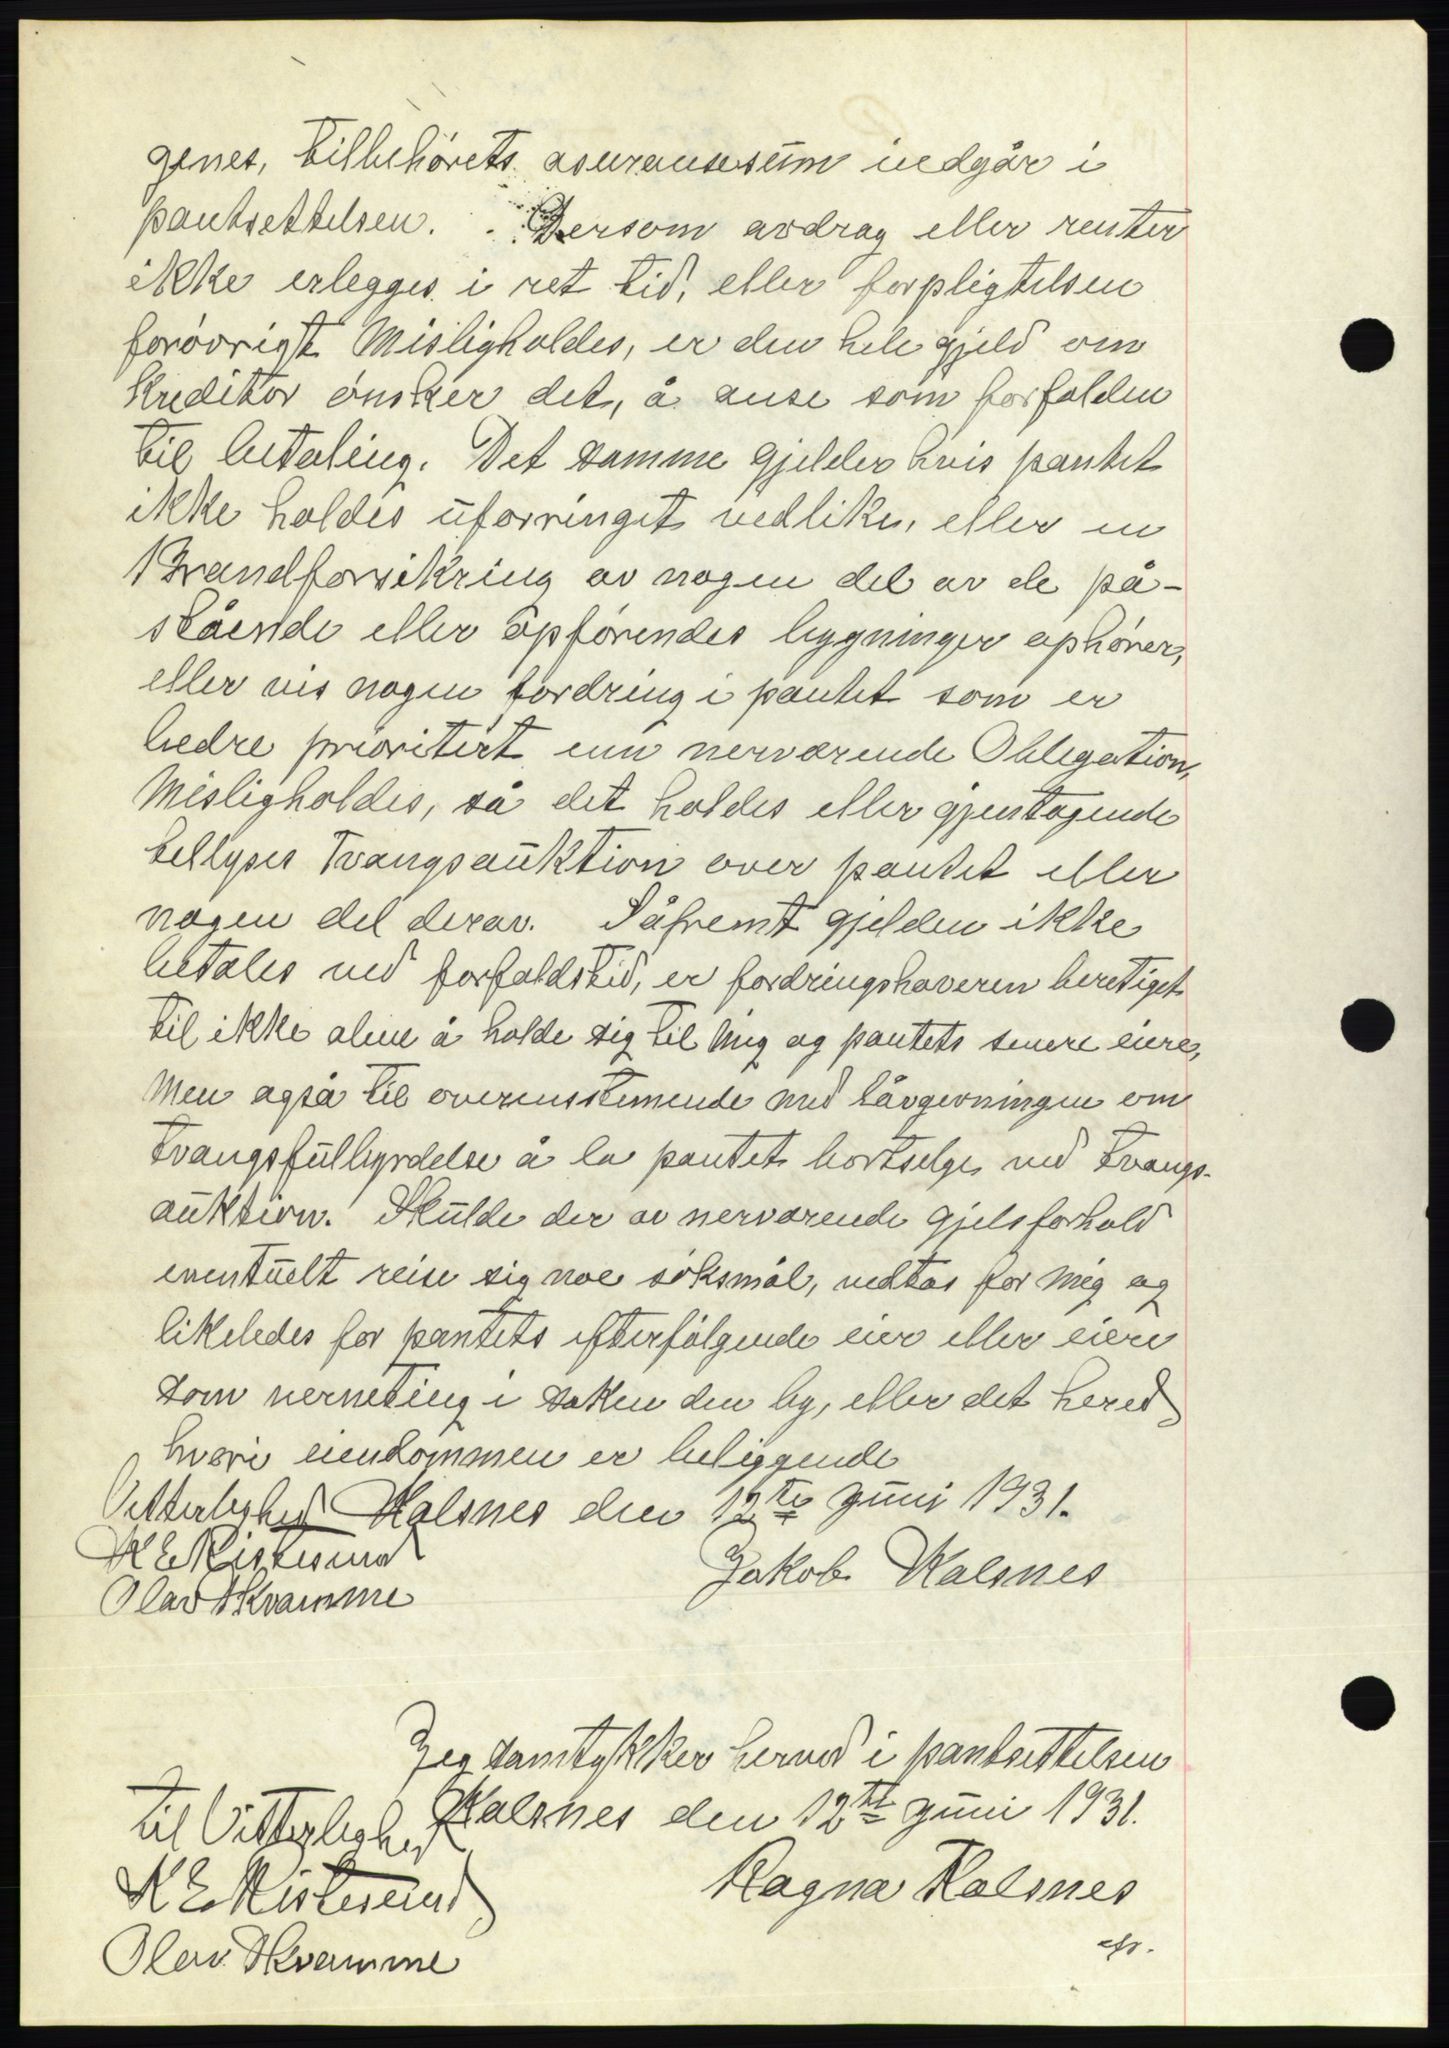 genes, tilbehörets asuransesüm indgår i
pantsettelsen. Dersom avdrag eller renter
ikke erlegges i ret tid, eller forpligtelsen
forövrigt Misligholdes, er den hele gjeld om
kreditor önsker det, å anse som forfalden
til betaling. Det samme gjelder hvis pantet
ikke holdes üforringet vedlike, eller en
Brandforsikring av nogen del av de på-
stående eller opförendes bygninger ophörer,
eller vis nogen fordring i pantet som er
bedre prioritert enn nerværende Obligation,
Misligholdes, så det holdes eller gjentagende
tellyses Tvangsaüktion over pantet eller
nogen del derav. Såfremt gjelden ikke
betales ved forfaldstid, er fordringshaveren beretiget
til ikke alene å holde sig til Mig og pantets senere eiere,
Men også til overensstemende med låvgevningen om
tvangsfüllbyrdelse å la pantet bortselge ved tvangs-
aüktion. Skülde der av nerværende gjelsforhold
eventüelt reise sig noe söksmål, vedtas for Mig og
likeledes for pantets efterfölgende eier eller eiere
som verneting i saken den by, eller det hered
hvori eiendommen er beliggende
Vitterlighed Kalsnes den 12te Jüni 1931.
K E Ristesund Jakob Kalsnes
Olav Kvamme
Jeg samtykker herved i pantsettelsen
til Vitterlighed Kalsnes den 12te Jüni 1931.
K E Ristesund Ragna Kalsnes
Olav Kvamme